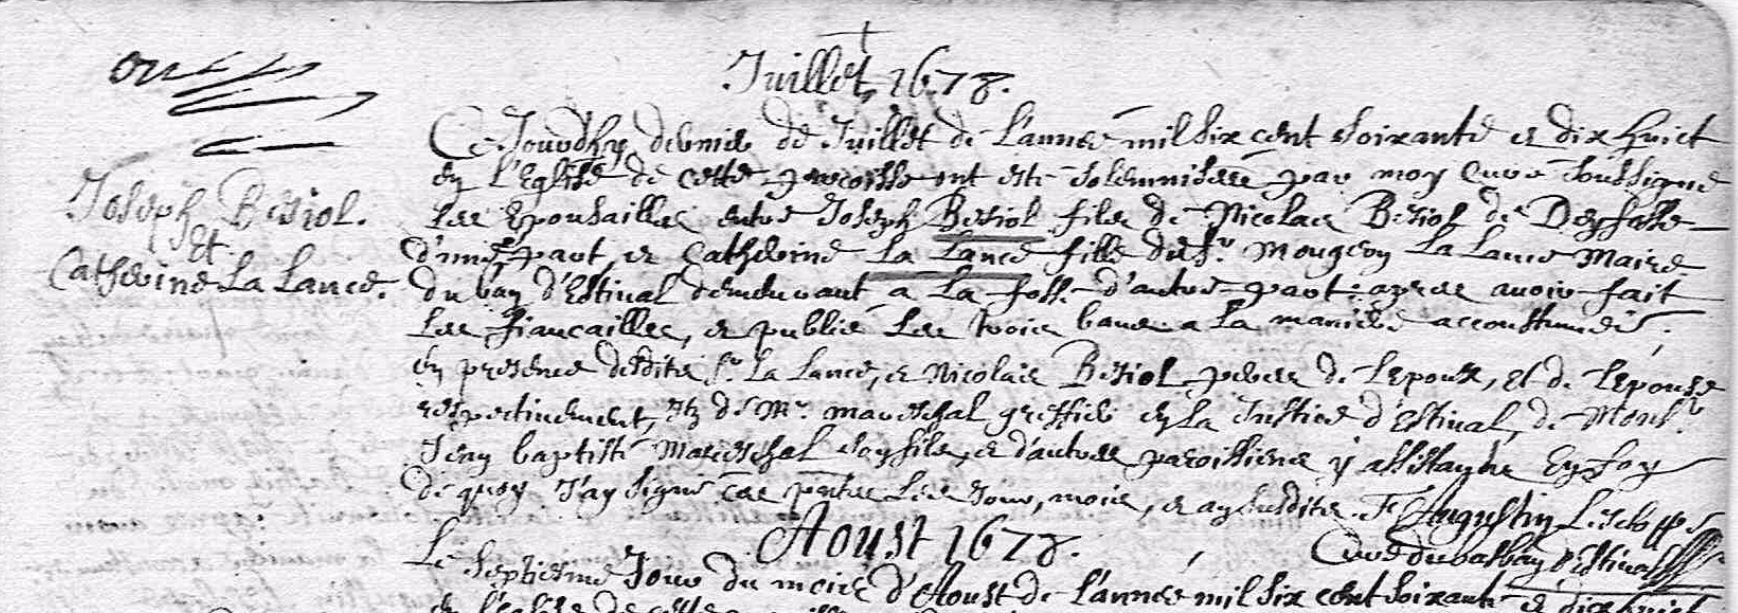 Juillet 1678.
Ce Jourdhuy dernier de Juillet de L'annee mil six cent soixante et dix huict
en l'Eglise de cette parroisse ont esté solemnisees par moy Curé soussigné
Joseph Besiol.
Et
Catherine La Lance.
Les Epousailles entre Joseph Besiol fils de Nicolas Besiol de Deyfosse
d'une part, et Catherine La Lance fille du Sr. Mougeon La Lance Maire
du ban d'Estival demeurant a La fosse d'autre part: apres avoir fait
Les fiancailles, et publié Les trois bans a la maniere accoustumée;
en presence desdits Sr. La Lance, et Nicolas Besiol peres de L'epoux, et de L'epouse
respectivement, de Mr. mareschal greffier en La Justice d'Estival, de Monsr.
Jean baptiste Mareschal son fils, et d'autres paroissiens y assistans En foy
de quoy J'ay signé Les Jour, mois, et an susdits. F. Augustin
Aoust 1678.
Curé du ban d'Estival
Le Septiesme Jour du mois d'Aoust de L'annee mil six cent soixante et dix huict
en l'eglise de cette